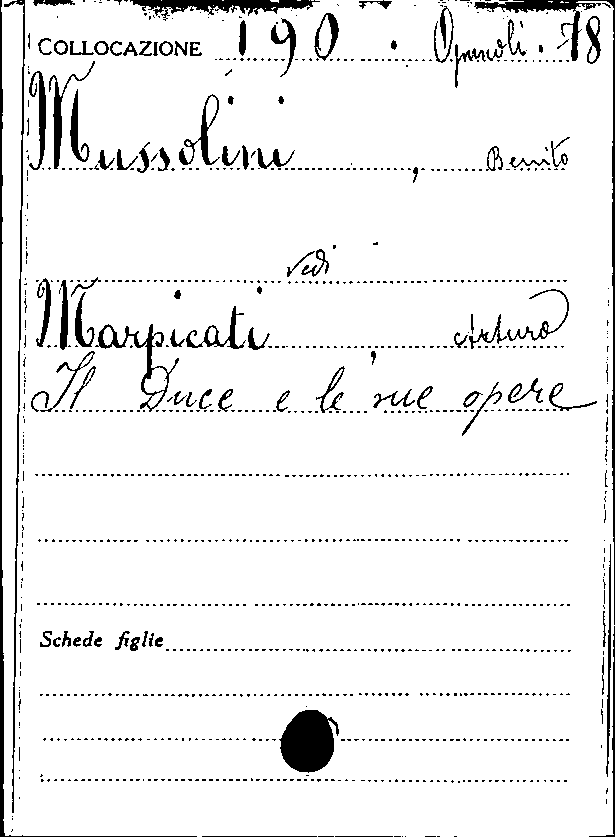 COLLOCAZIONE 190 . Opuscoli . 78
Mussolini , Benito
vedi
Marpicati , Arturo
Il Duce e le sue opere
Schede figlie